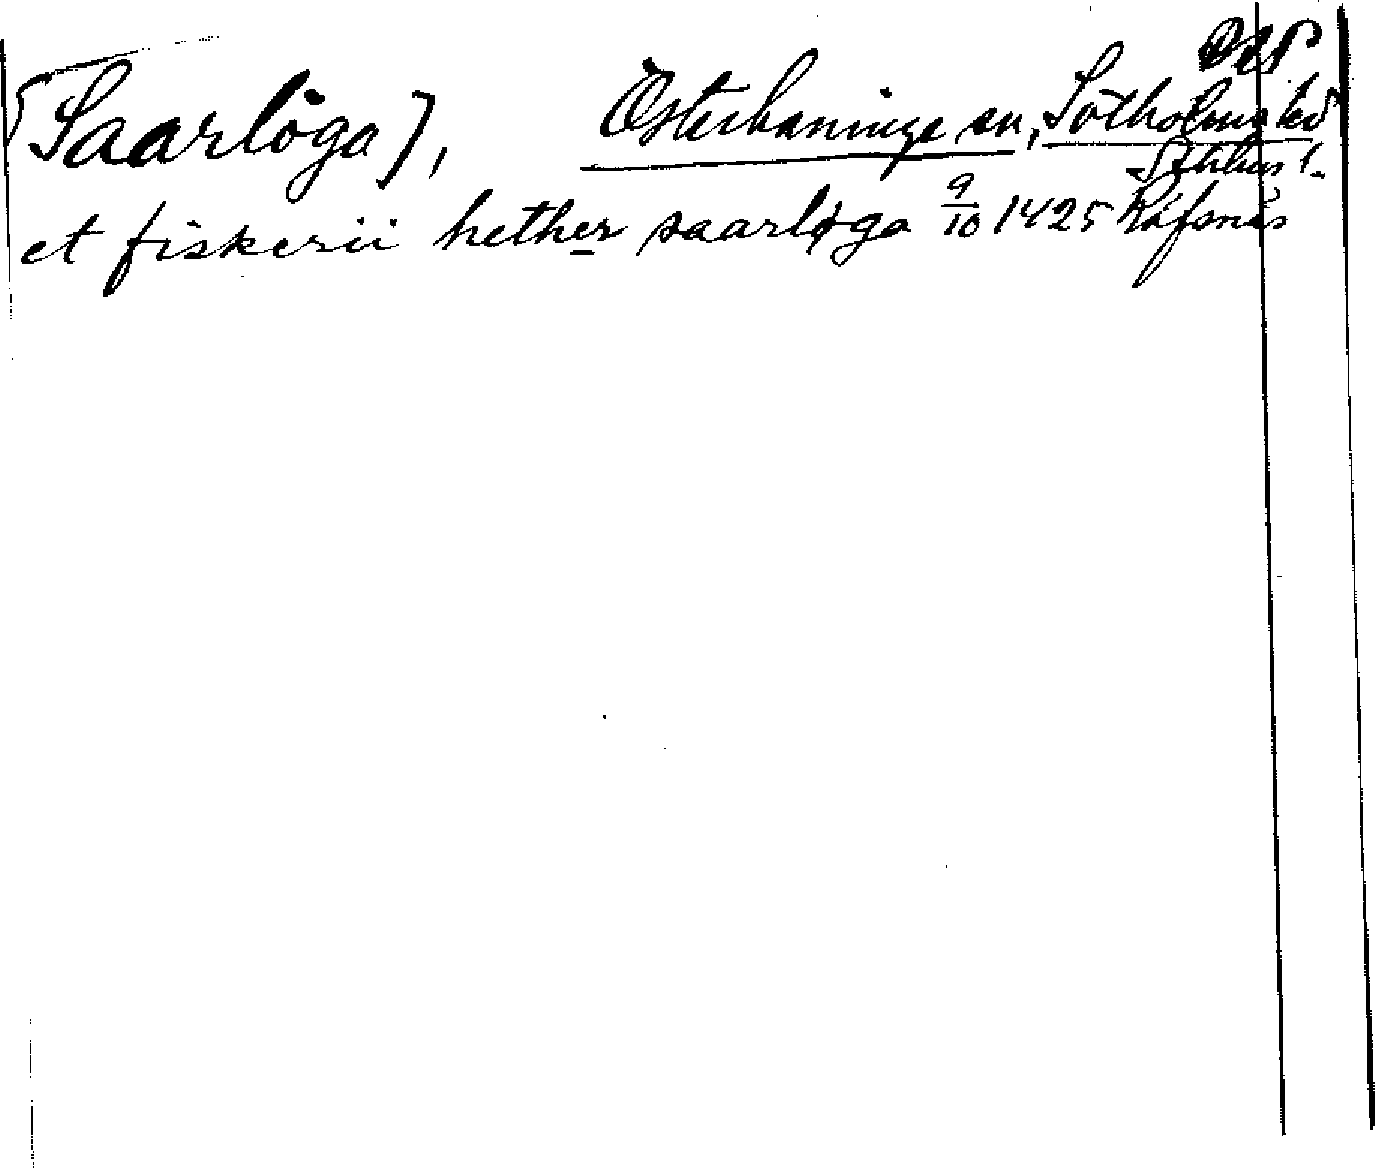 [Saarlöga], Österhaninge sn, Sotholms hd
Sthlms l.
et fiskerii hether saarløga 9/10 1425 Räfsnäs